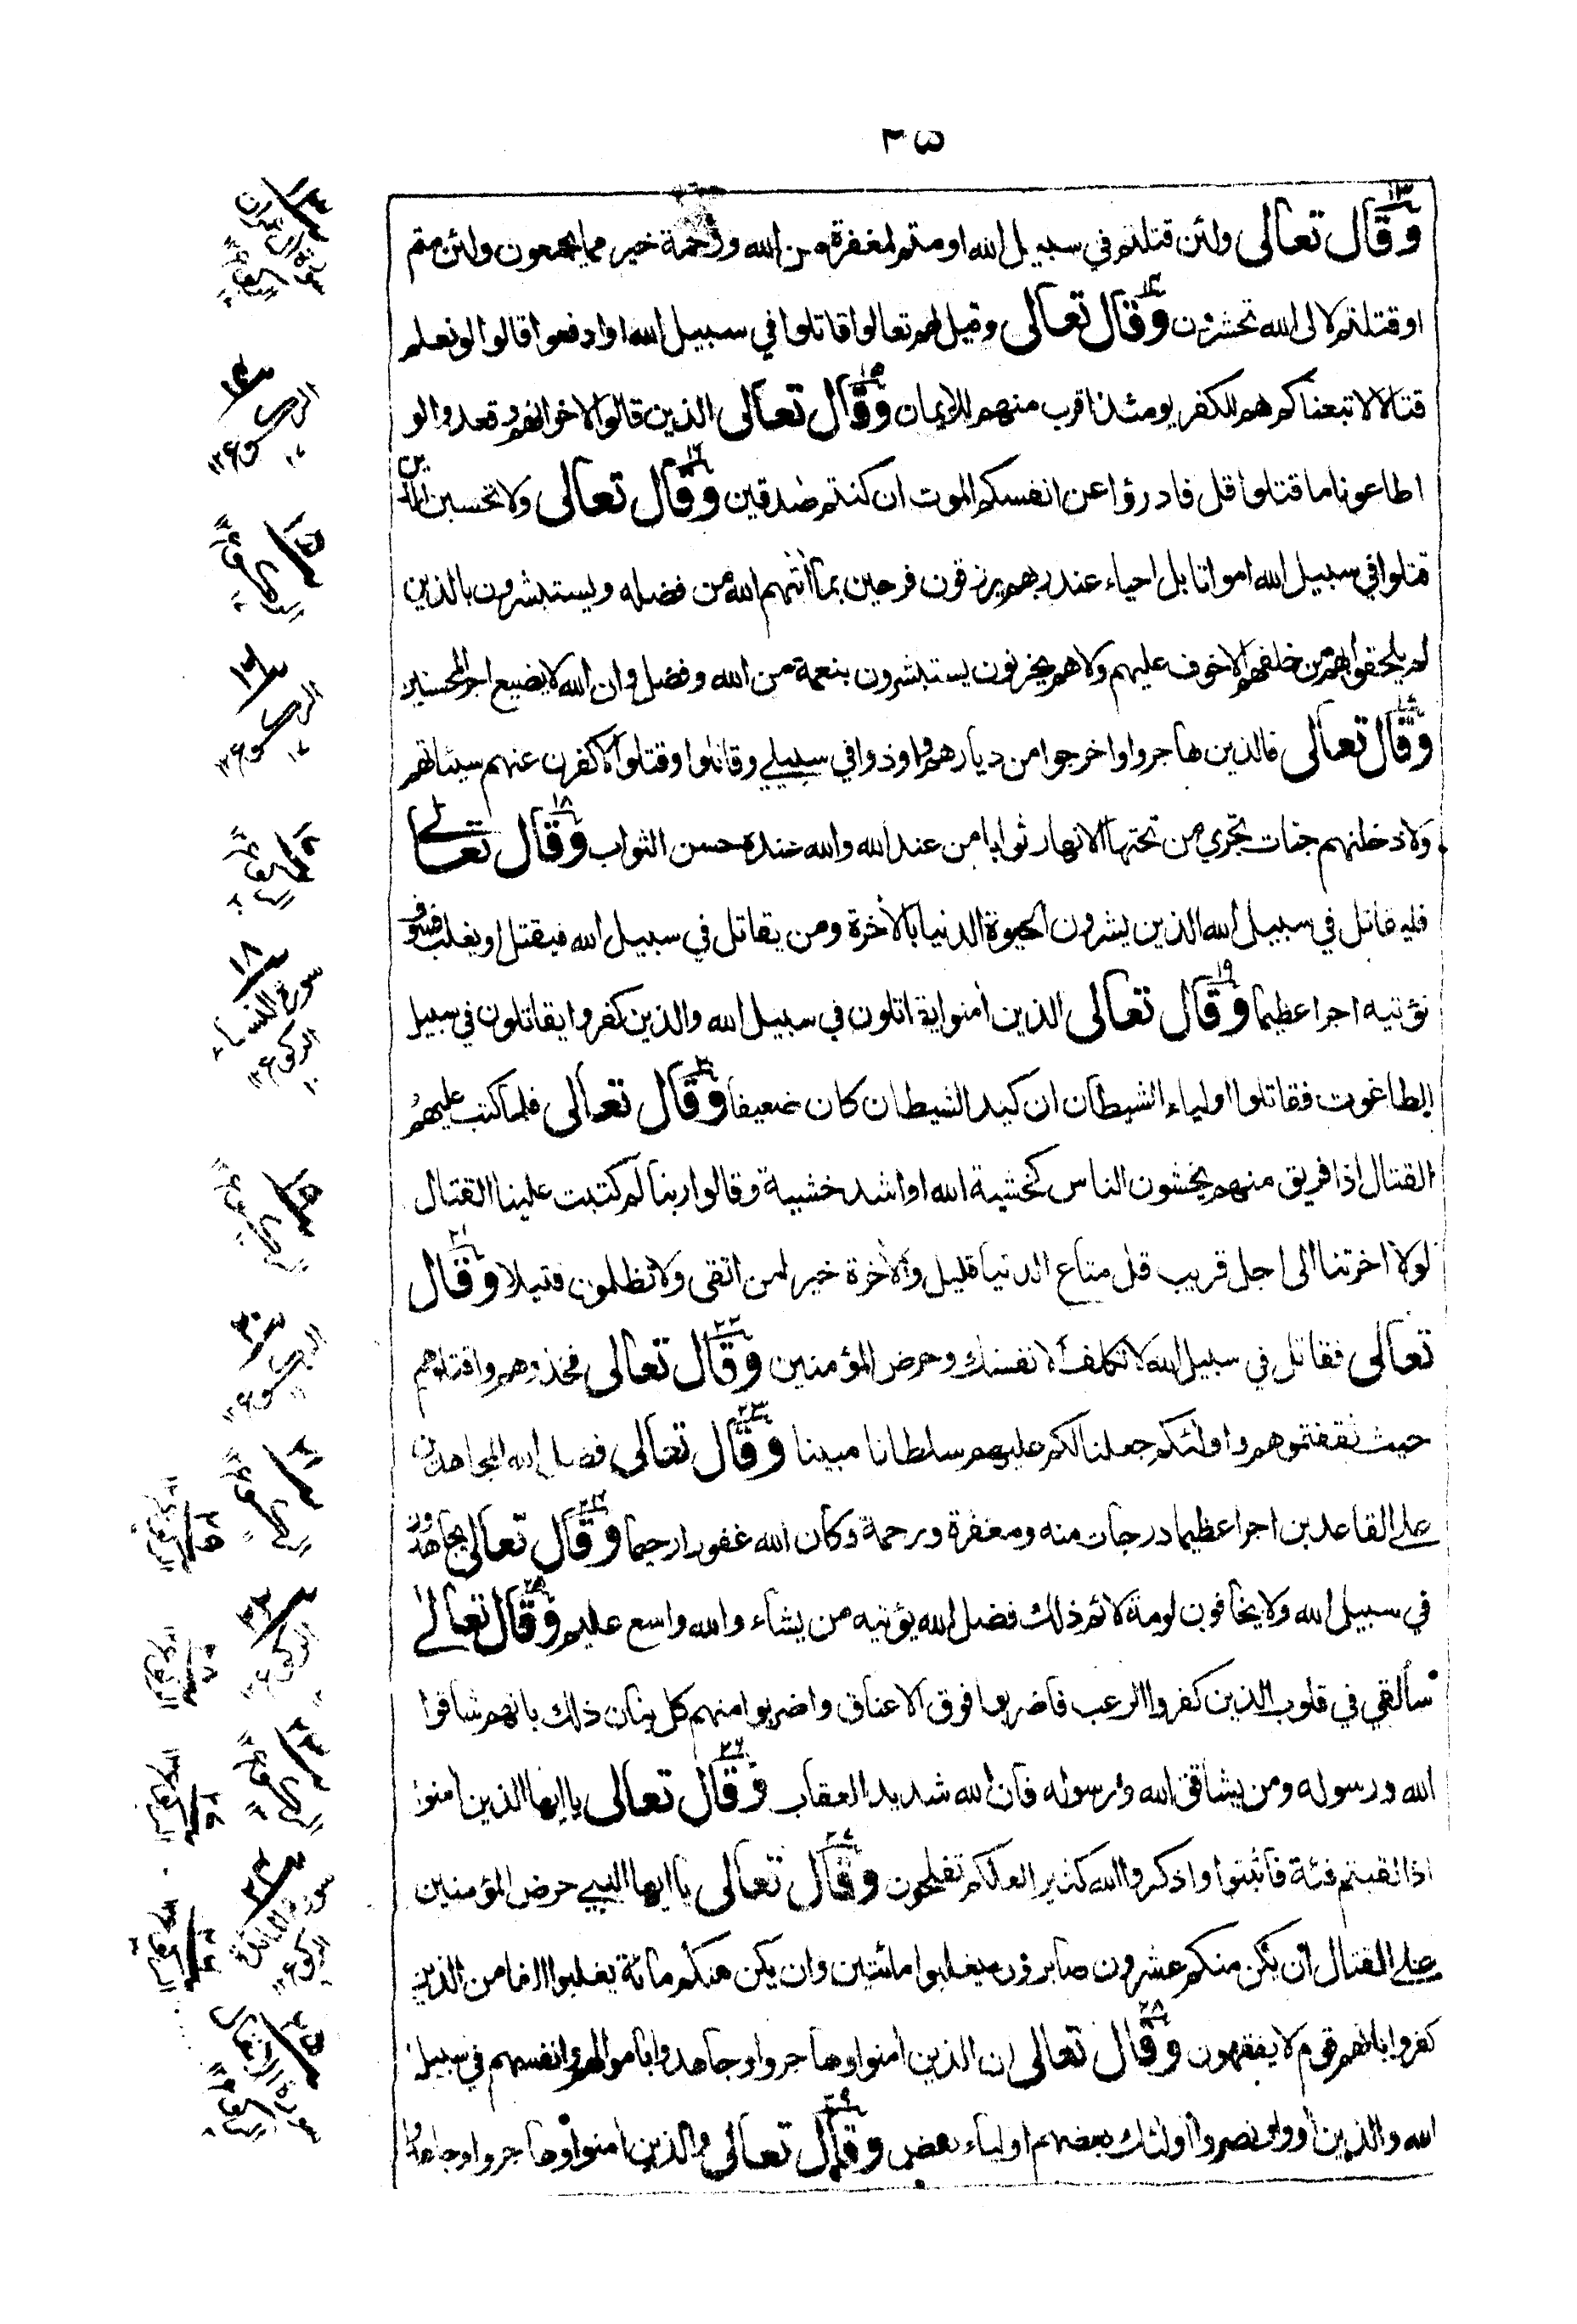 ٣٥
وقال تعالى ولئن قتلتم في سبيل الله او متم لمغفرة من الله ورحمة خير مما يجمعون ولئن متم
او قتلتم لا لى الله تحشرون وقال تعالى وقيل لهم تعالوا قاتلوا في سبيل الله او ادفعوا قالوا لو نعلم
قتالا لاتبعناكم هم للكفر يومئذ اقرب منهم للايمان وقال تعالى الذين قالوا لاخوانهم وقعدوا لو
اطاعونا ما قتلوا قل فادرؤا عن انفسكم الموت ان كنتم صدقين وقال تعالى ولا تحسبن الذين
قتلوا في سبيل الله امواتا بل احياء عند ربهم يرزقون فرحين بما أتٰهم الله من فضله ويستبشرون بالذين
لم يلحقوا بهم من خلفهم الا خوف عليهم ولا هم يحزنون يستبشرون بنعمة من الله وفضل وان الله لا يضيع اجر المحسنين
وقال تعالى فالذين هاجروا واخرجوا من ديارهم واوذوا في سبيلي وقاتلوا وقتلوا لاكفرن عنهم سيئاتهم
ولادخلنهم جنات تجري من تحتها الانهار ثوابا من عند الله والله عنده حسن الثواب وقال تعالے
فليقاتل في سبيل الله الذين يشرون الحيوة الدنيا بالأخرة ومن يقاتل في سبيل الله فيقتل او يغلب فسوف
نؤتيه اجرا عظيما وقال تعالى الذين أمنوا يقاتلون في سبيل الله والذين كفروا يقاتلون في سبيل
الطاغوت فقاتلوا اولياء الشيطان ان كيد الشيطان كان ضعيفا وقال تعالى فلما كتب عليهم
القتال اذا فريق منهم يخشون الناس كخشية الله او اشد خشية وقالوا ربنا لم كتبت علينا القتال
لولا اخرتنا الى اجل قريب قل متاع الدنيا قليل والأخرة خير لمن اتقى ولا تظلمون فتيلا وقال
تعالى فقاتل في سبيل الله لا تكلف الا نفسك وحرض المؤمنين وقال تعالى فخذوهم واقتلوهم
حيث ثقفتموهم واولئكم جعلنا لكم عليهم سلطانا مبينا وقال تعالى فضل الله المجاهدين
علے القاعدين اجرا عظيما درجات منه ومغفرة ورحمة وكان الله غفورا رحيما وقال تعالى يجاهدون
في سبيل الله ولا يخافون لومة لائم ذلك فضل الله يؤتيه من يشاء والله واسع عليم وقال تعالىٰ
سألقي في قلوب الذين كفروا الرعب فاضربوا فوق الاعناق واضربوا منهم كل بنان ذلك بانهم شاقوا
الله ورسوله ومن يشاقق الله ورسوله فان الله شديد العقاب وقال تعالى يا ايها الذين أمنوا
اذا لقيتم فئة فاثبتوا واذكروا الله كثيرا لعلكم تفلحون وقال تعالى يا ايها النبي حرض المؤمنين
علے القتال ان يكن منكم عشرون صابرون يغلبوا مائتين وان يكن منكم مائة يغلبوا الفا من الذين
كفروا بانهم قوم لا يفقهون وقال تعالى ان الذين أمنوا وهاجروا وجاهدوا باموالهم وانفسهم في سبيل
الله والذين أووا ونصروا أولئك بعضهم اولياء بعض وقال تعالى والذين أمنوا وهاجروا وجاهدوا